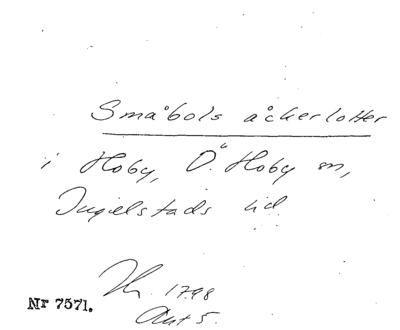 Småbols åckerlotter
i Hoby, Ö. Hoby sn,
Ingelstads hd
Nr 7571.
1798
Akt 5.